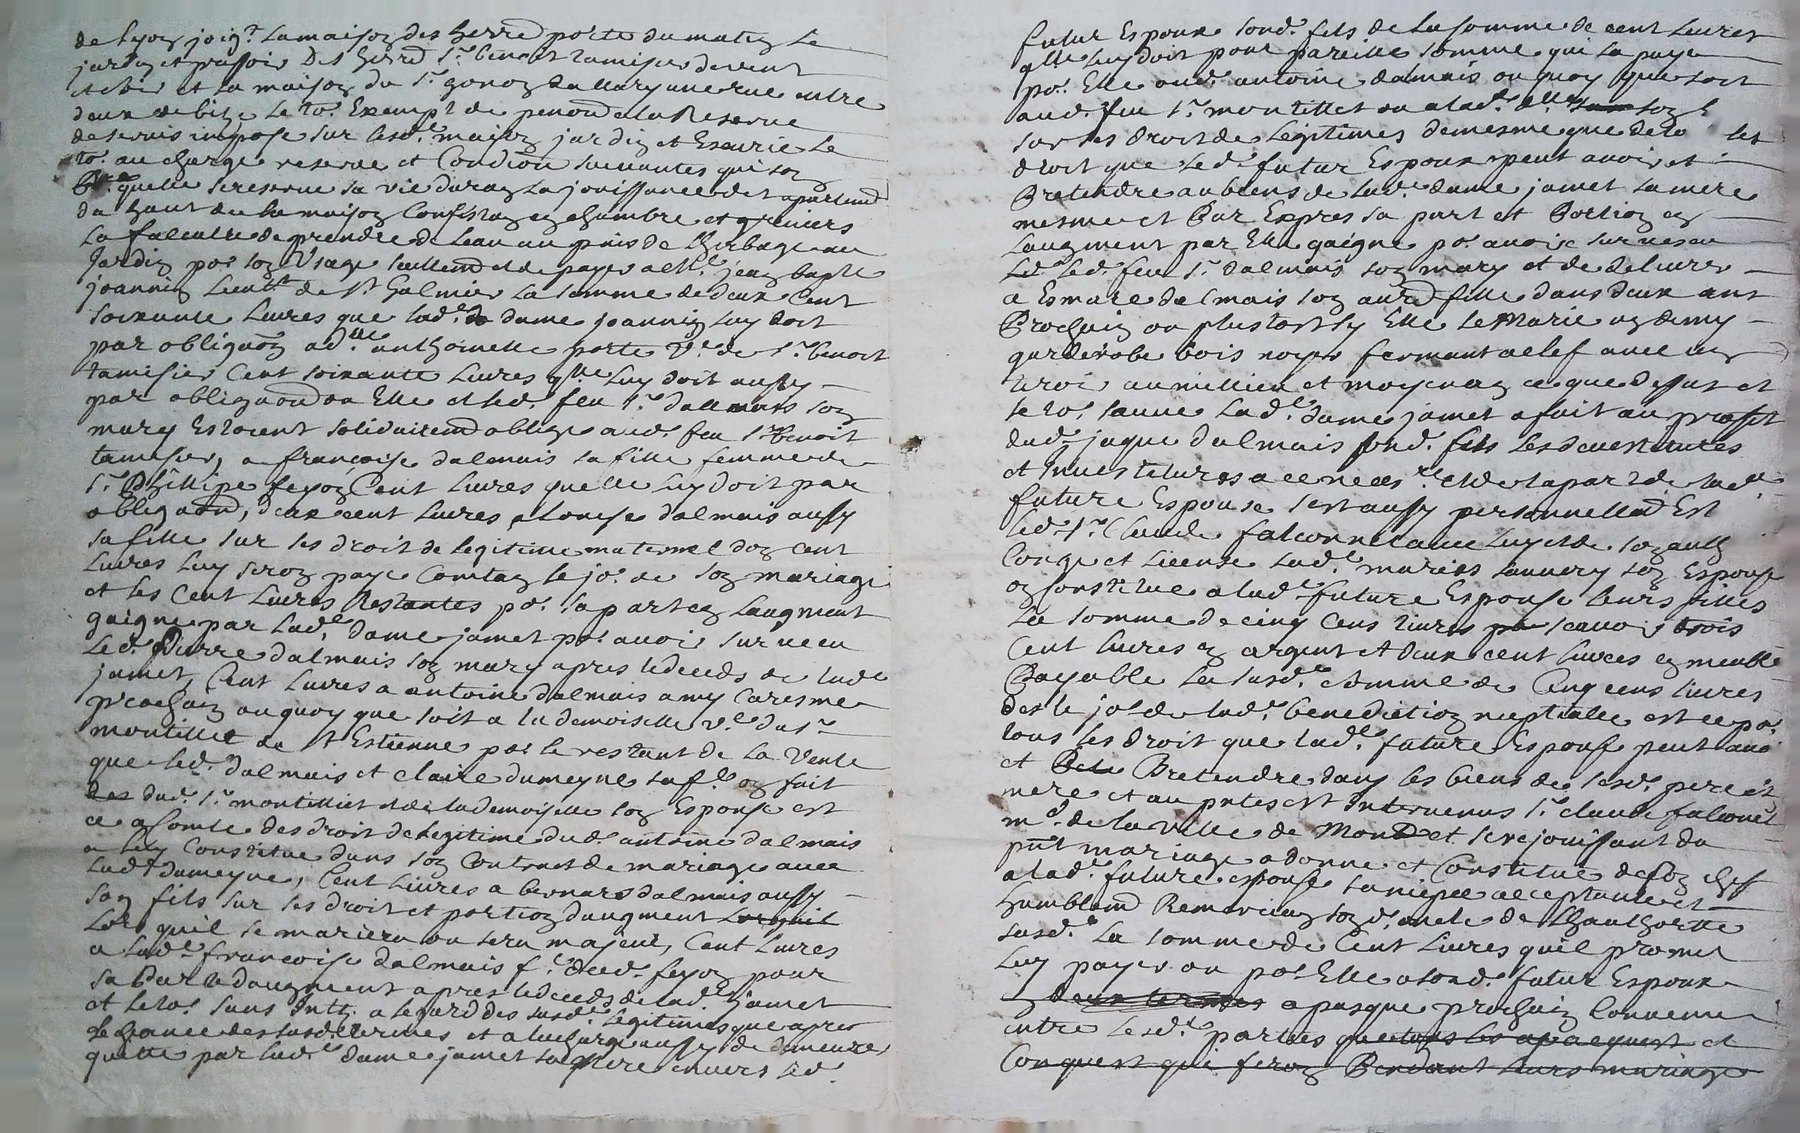 de lyon joig.t la maison des hered porte du matin le
jardin et pressoir Des hered s.r benoit tamisier devent
et la maison du s.r gonon dallary une rue entre
deux de bize le to.t Exempt de penon a la Reserve
de servis impose sur lesd. maison jardin et Escurie le
to.t au charge reserve et Condion suivantes qui son
quelle se reserve sa vie duran la jouissance de l apartemd
du haut de la maison Consistan en chambre et greniers
la faculte de prendre de leau au puis de lherbage au
Jardin po.r son Usage seullemd et de payer a M.r jean baptte
joannin Lieut.t de s.t Galmier la somme de deux Cent
soixante Livres que lad.e dame joannin luy doit
par obligaon a d.lle anthoinette porte v.e de s.r benoit
tamisier Cent soixante Livres q.lle luy doit aussy
par obligaon ou Elle et led. feu s.r dallmais son
mary Estoient solidairemd oblige aud. feu s.r benoit
tamisier, a francoise dalmais sa fille femme de
s.r Phillipe feyon Cent Livres quelle luy doit par
obligaon, deux cent Livres a Louise dalmais aussy
sa fille sur les droit de legitime maternel don cent
Livres luy seron paye Comtan le jo.r de son mariage
et les Cent Livres Restantes po.r sa part en laugment
gaigne par lad.e dame jamet po.r avoir survecu
led. Pierre dalmais son mary apres le deceds de lad.e
jamet, Cent Livres a antoine dalmais a my Caresme
prochain ou quoy que soit a la demoiselle v.e du s.r
montillet de s.t Estienne po.r le restant de la Vente
que led. dalmais et claire dumeyne sa f.e on fait
dud. s.r montilliet et de la demoiselle son Espouse est
ce a Comte des droit de legitime dud. antoine dalmais
a luy Constitue dans son Contract de mariage avec
lad.e dumeyne, Cent Livres a bernard dalmais aussy
son fils sur les droit et portion daugment
Lors quil se mariera ou sera majeur, Cent Livres
a lad.e francoise dalmais f.e dud. feyon pour
sa Par daugment apres le deceds de lad. jamet
et le to.t sans Intt. a legard des susd. legitimes que apres
cheance des susd. termes et a la charge aussy de demeurer
quitte par lad.e dame jamet sa mere envers led.
futur Espoux sond. fils de la somme de cent Livres
q.lle luy doit pour pareille somme qui la paye
po.r Elle aud. antoine dalmais ou quoy que soit
aud. feu s.r montillet ou a lad.e son
sur les droit de legitimes de mesme que de to les
droit que led. futur Espoux peut avoir et
Pretendre au biens de lad.e dame jamet sa mere
mesme et Par Expres sa part et Portion en
laugment par Elle gaigne po.r avoir survecu
led. feu s.r dalmais son mary et de delivrer
a Esmare dalmais son aut.e fille dans deux ans
Prochain ou plustost sy Elle se Marie un demy
garderobe bois noyer fermant a clef avec un
tiroir au millieu et moyenan ce que dessus et
le to.t sauve lad.e dame jamet a fait au proffit
dud. jaque dalmais sond. fils les devestitutes
et Investitures a ce necess.e et de la part de lad.e
future Espouse s'est aussy personnellemd Est
led. s.r Claude falconnet avec luy et de son auth
Conge et license lad.e marie lauvery son Espouse
on Constitue a lad.e future Espouse leurs filles
la somme de cinq Cens livres scavoir trois
Cent livres en argent et deux cent livres en meuble
Payable la susd.e somme de Cinq cens livres
des le jo.r de lad.e benediction nuptialle est ce po.r
tous les droit que lad.e future Espouse peut avoir
et Pretendre dans les biens de sesd. pere et
mere et au pntes est Intervenus s.r claude falconet
m.d de la ville de et se rejouissant du
pnt mariage a donne et Constitue de son chef
a lad.e future espouse sa niepce acceptante et
humblemd Remercian son d. oncle de lhauthorite
susd.e la somme de Cent Livres quil promet
luy payer ou po.r Elle a sond. futur Espoux
deux termes a pasque prochain Convenu
entre lesd. parties que tous les apacquest et
Conquest qui feron Pendant leurs mariage